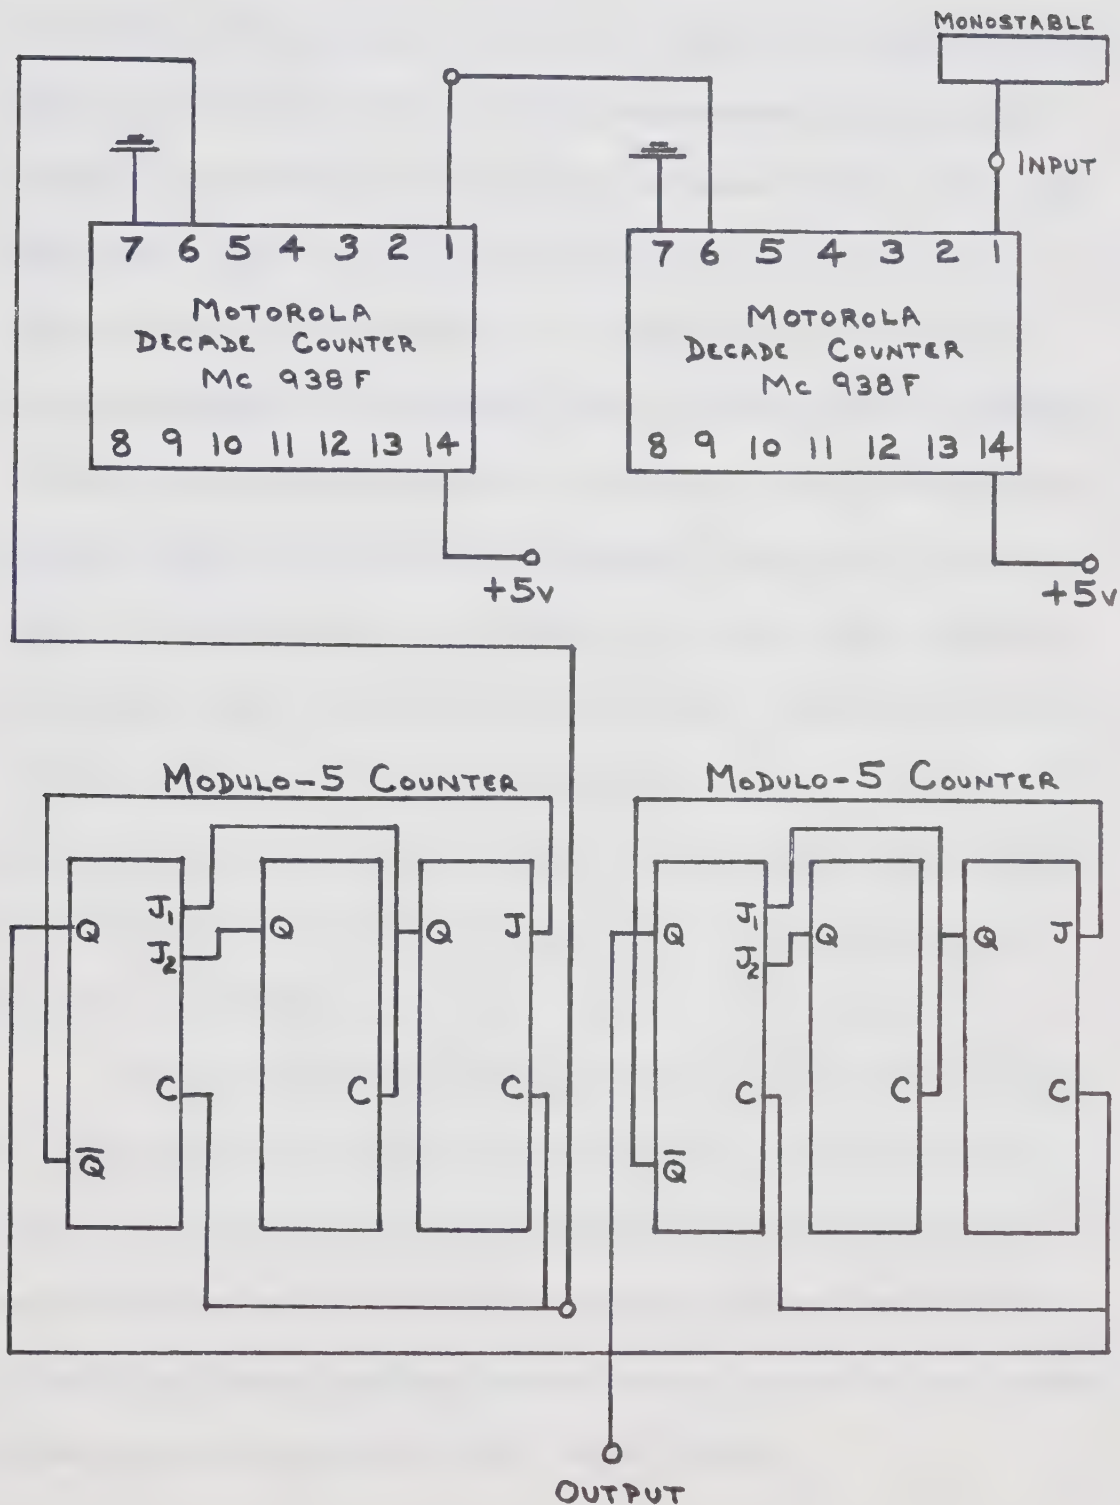 MONOSTABLE
INPUT
7 6 5 4 3 2 1
MOTOROLA
DECADE COUNTER
MC 938F
8 9 10 11 12 13 14
+5V
7 6 5 4 3 2 1
MOTOROLA
DECADE COUNTER
MC 938F
8 9 10 11 12 13 14
+5V
MODULO-5 COUNTER
Q J₁ Q Q J
J₂
C C C
Q̅
MODULO-5 COUNTER
Q J₁ Q Q J
J₂
C C C
Q̅
OUTPUT